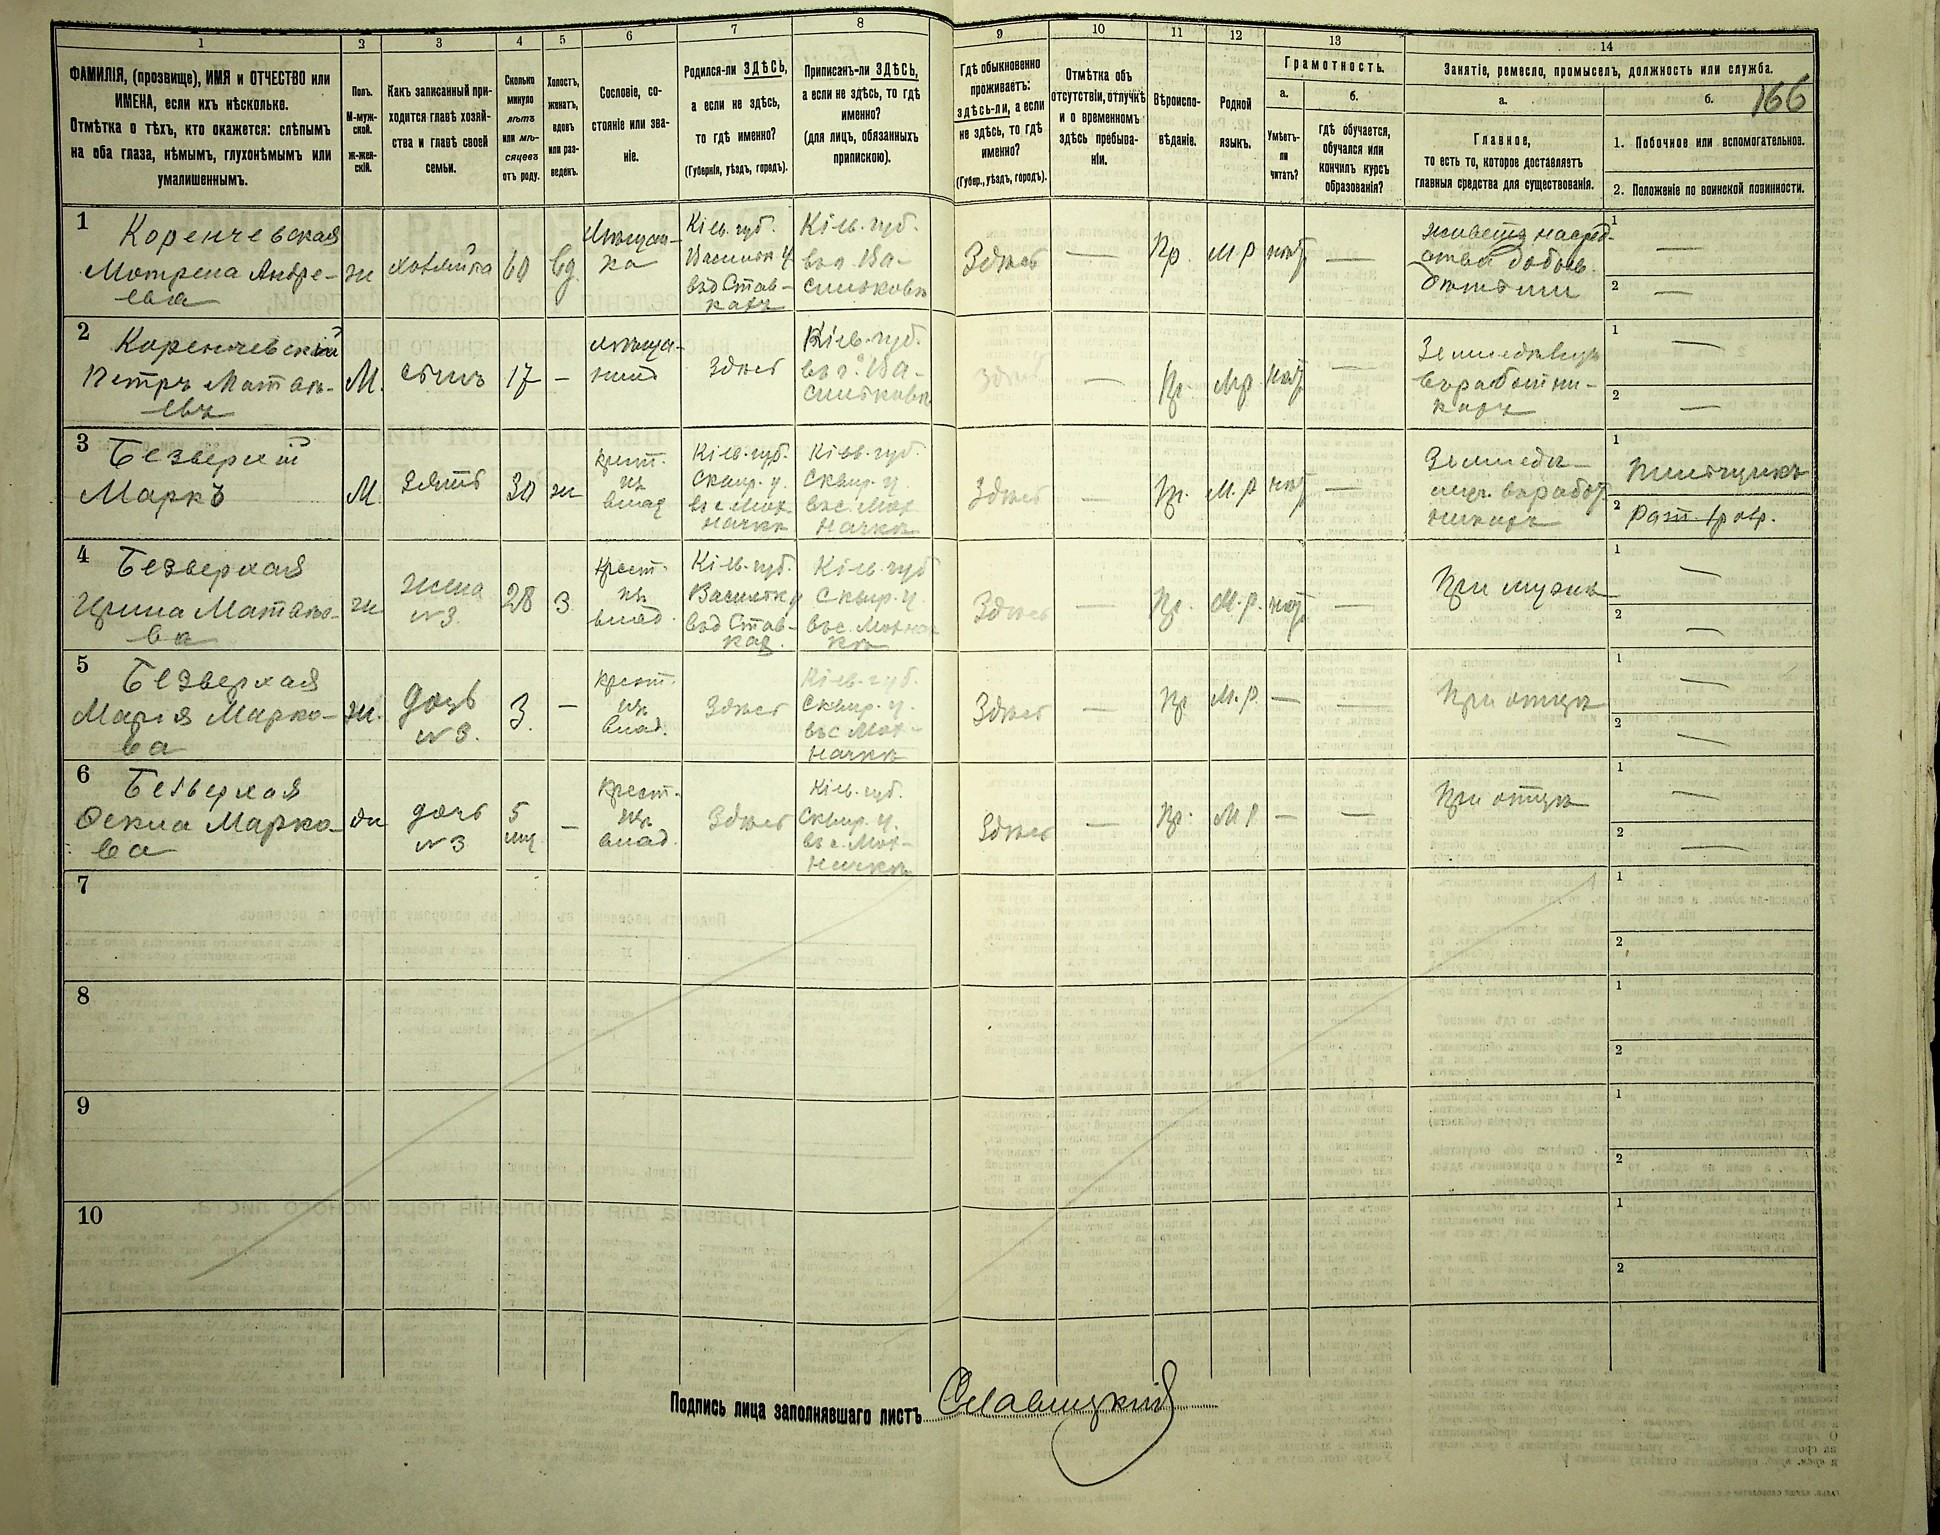 166
1
2
3
4
5
6
7
8
9
10
11
12
13
14
ФАМИЛІЯ, (прозвище), ИМЯ и ОТЧЕСТВО или
ИМЕНА, если ихъ нѣсколько.
Отмѣтка о тѣхъ, кто окажется: слѣпымъ
на оба глаза, нѣмымъ, глухонѣмымъ или
умалишеннымъ.
Полъ.
М-муж-
ской.
ж-жен-
скій.
Какъ записанный при-
ходится главѣ хозяй-
ства и главѣ своей
семьи.
Сколько
минуло
лѣтъ
или мѣ-
сяцевъ
отъ роду.
Холостъ,
женатъ,
вдовъ
или раз-
веденъ.
Сословіе, со-
стояніе или зва-
ніе.
Родился-ли ЗДѢСЬ,
а если не здѣсь,
то гдѣ именно?
(Губернія, уѣздъ, городъ).
Приписанъ-ли ЗДѢСЬ,
а если не здѣсь, то гдѣ
именно?
(для лицъ, обязанныхъ
припискою).
Гдѣ обыкновенно
проживаетъ:
здѣсь-ли, а если
не здѣсь, то гдѣ
именно?
(Губер., уѣздъ, городъ).
Отмѣтка объ
отсутствіи, отлучкѣ
и о временномъ
здѣсь пребыва-
ніи.
Вѣроиспо-
вѣданіе.
Родной
языкъ.
Грамотность.
а.
б.
Умѣетъ-
ли
читать?
гдѣ обучается,
обучался или
кончилъ курсъ
образованія?
Занятіе, ремесло, промыселъ, должность или служба.
а.
б.
Главное,
то есть то, которое доставляетъ
главныя средства для существованія.
1. Побочное или вспомогательное.
2. Положеніе по воинской повинности.
1
Коренчевская
Мотрена Андре-
ева
ж
хозяйка
60
вд.
Мѣщан-
ка
Кіев. губ.
Васильк у.
въ д Став-
кахъ
Кіев. губ.
въ г. Ва-
сильковѣ
Здѣсь
—
Пр
М.р
нѣт
—
1 —
2 —
2
Коренчевскій
Петръ Матвѣ-
евъ
М.
сынъ
17
—
мѣща-
нинъ
Здѣсь
Кіев. губ.
въ г. Ва-
сильковѣ
здѣсь
—
Пр.
М.р
нѣт
—
Земледѣлецъ
въ работни-
кахъ
1 —
2 —
3
Безверхій
Маркъ
М.
зять
30
ж
крест.
изъ
влад
Кіев. губ.
Сквир. у.
въ с Мох
начкѣ
Кіев. губ.
Сквир. у
въ с. Мох
начкѣ
Здѣсь
—
Пр.
М.р
нѣт
—
1
2
4
Безверхая
Ирина Матвѣе-
ва
ж
жена
№3.
28
З
крест.
изъ
влад.
Кіев. губ.
Васильк у
въ д Став-
ках.
Кіев. губ
Сквир. у.
въ с. Мохнач
кѣ
Здѣсь
—
Пр.
М.р.
нѣт
—
При мужѣ
1 —
2 —
5
Безверхая
Марія Марко-
ва
ж.
дочь
№3.
3
—
крест.
изъ
влад.
Здѣсь
Кіев. губ.
Сквир. у.
въ с Мох-
начкѣ
Здѣсь
—
Пр
М.р.
—
—
При отцѣ
1 —
2 —
6
Безверхая
Марко-
ва
дочь
№3
5
мц
—
Крест.
изъ
влад.
Здѣсь
Кіев. губ.
Сквир. у.
въ с. Мох-
начкѣ
Здѣсь
—
Пр.
М р
—
—
При отцѣ
1 —
2 —
7
1
2
8
1
2
9
1
2
10
1
2
Подпись лица заполнявшаго листъ Славицкій